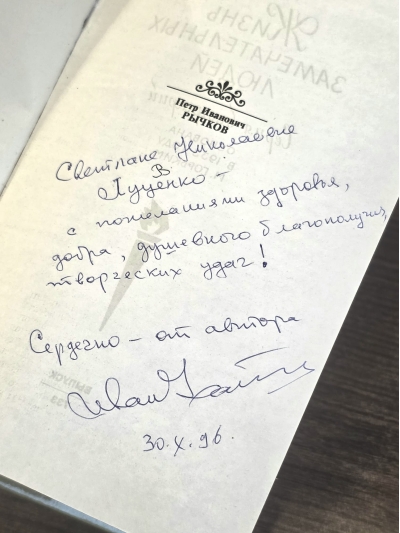 Петр Иванович
РЫЧКОВ
Светлане Николаевне
Луценко –
с пожеланиями здоровья,
добра, душевного благополучия,
творческих удач!
Сердечно – от автора
30.X.96.
ЖИЗНЬ
ЗАМЕЧАТЕЛЬНЫХ
ЛЮДЕЙ
ВЫПУСК